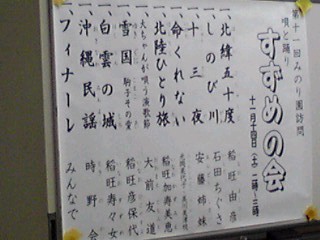 第十一回みのり園訪問
唄と踊り
すずめの会
十二月十四日(土)二時~三時
一、北緯五十度 稲旺由彦
一、しのび川 石田ちぐさ
一、十三夜 安藤姉妹
一、命くれない
一、北陸ひとり旅 稲旺加寿美恵
大ちゃんが唄う演歌節 大前友道
一、雪国 駒子その愛 稲旺彦保代
一、白雲の城 稲旺寿々女
一、沖縄民謡 時野会
一、フィナーレ みんなで